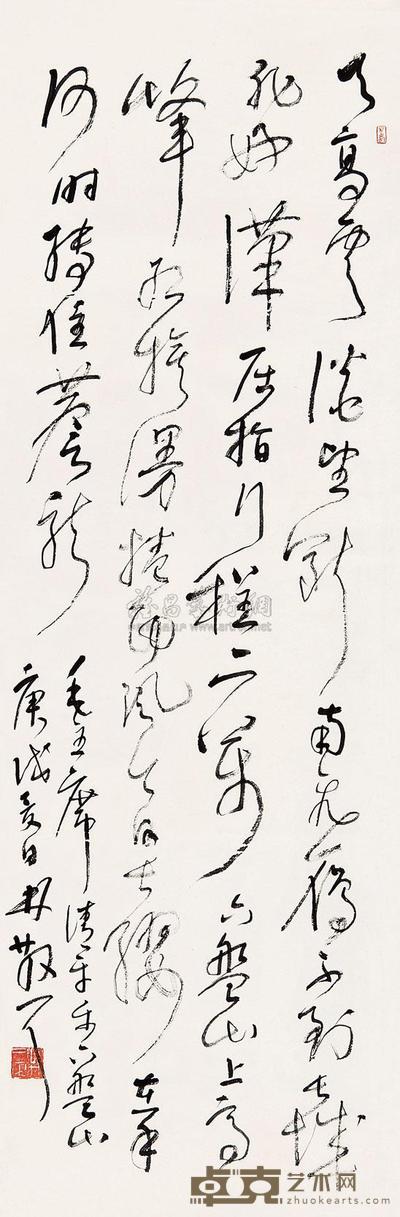 天高云淡望断南飞雁不到长城
非好汉屈指行程二万六盘山上高
峰红旗漫捲西风今日长缨在手
何时缚住苍龙
毛主席清平乐六盘山
庚戌夏日林散耳
卓克艺术网
www.zhuokearts.com